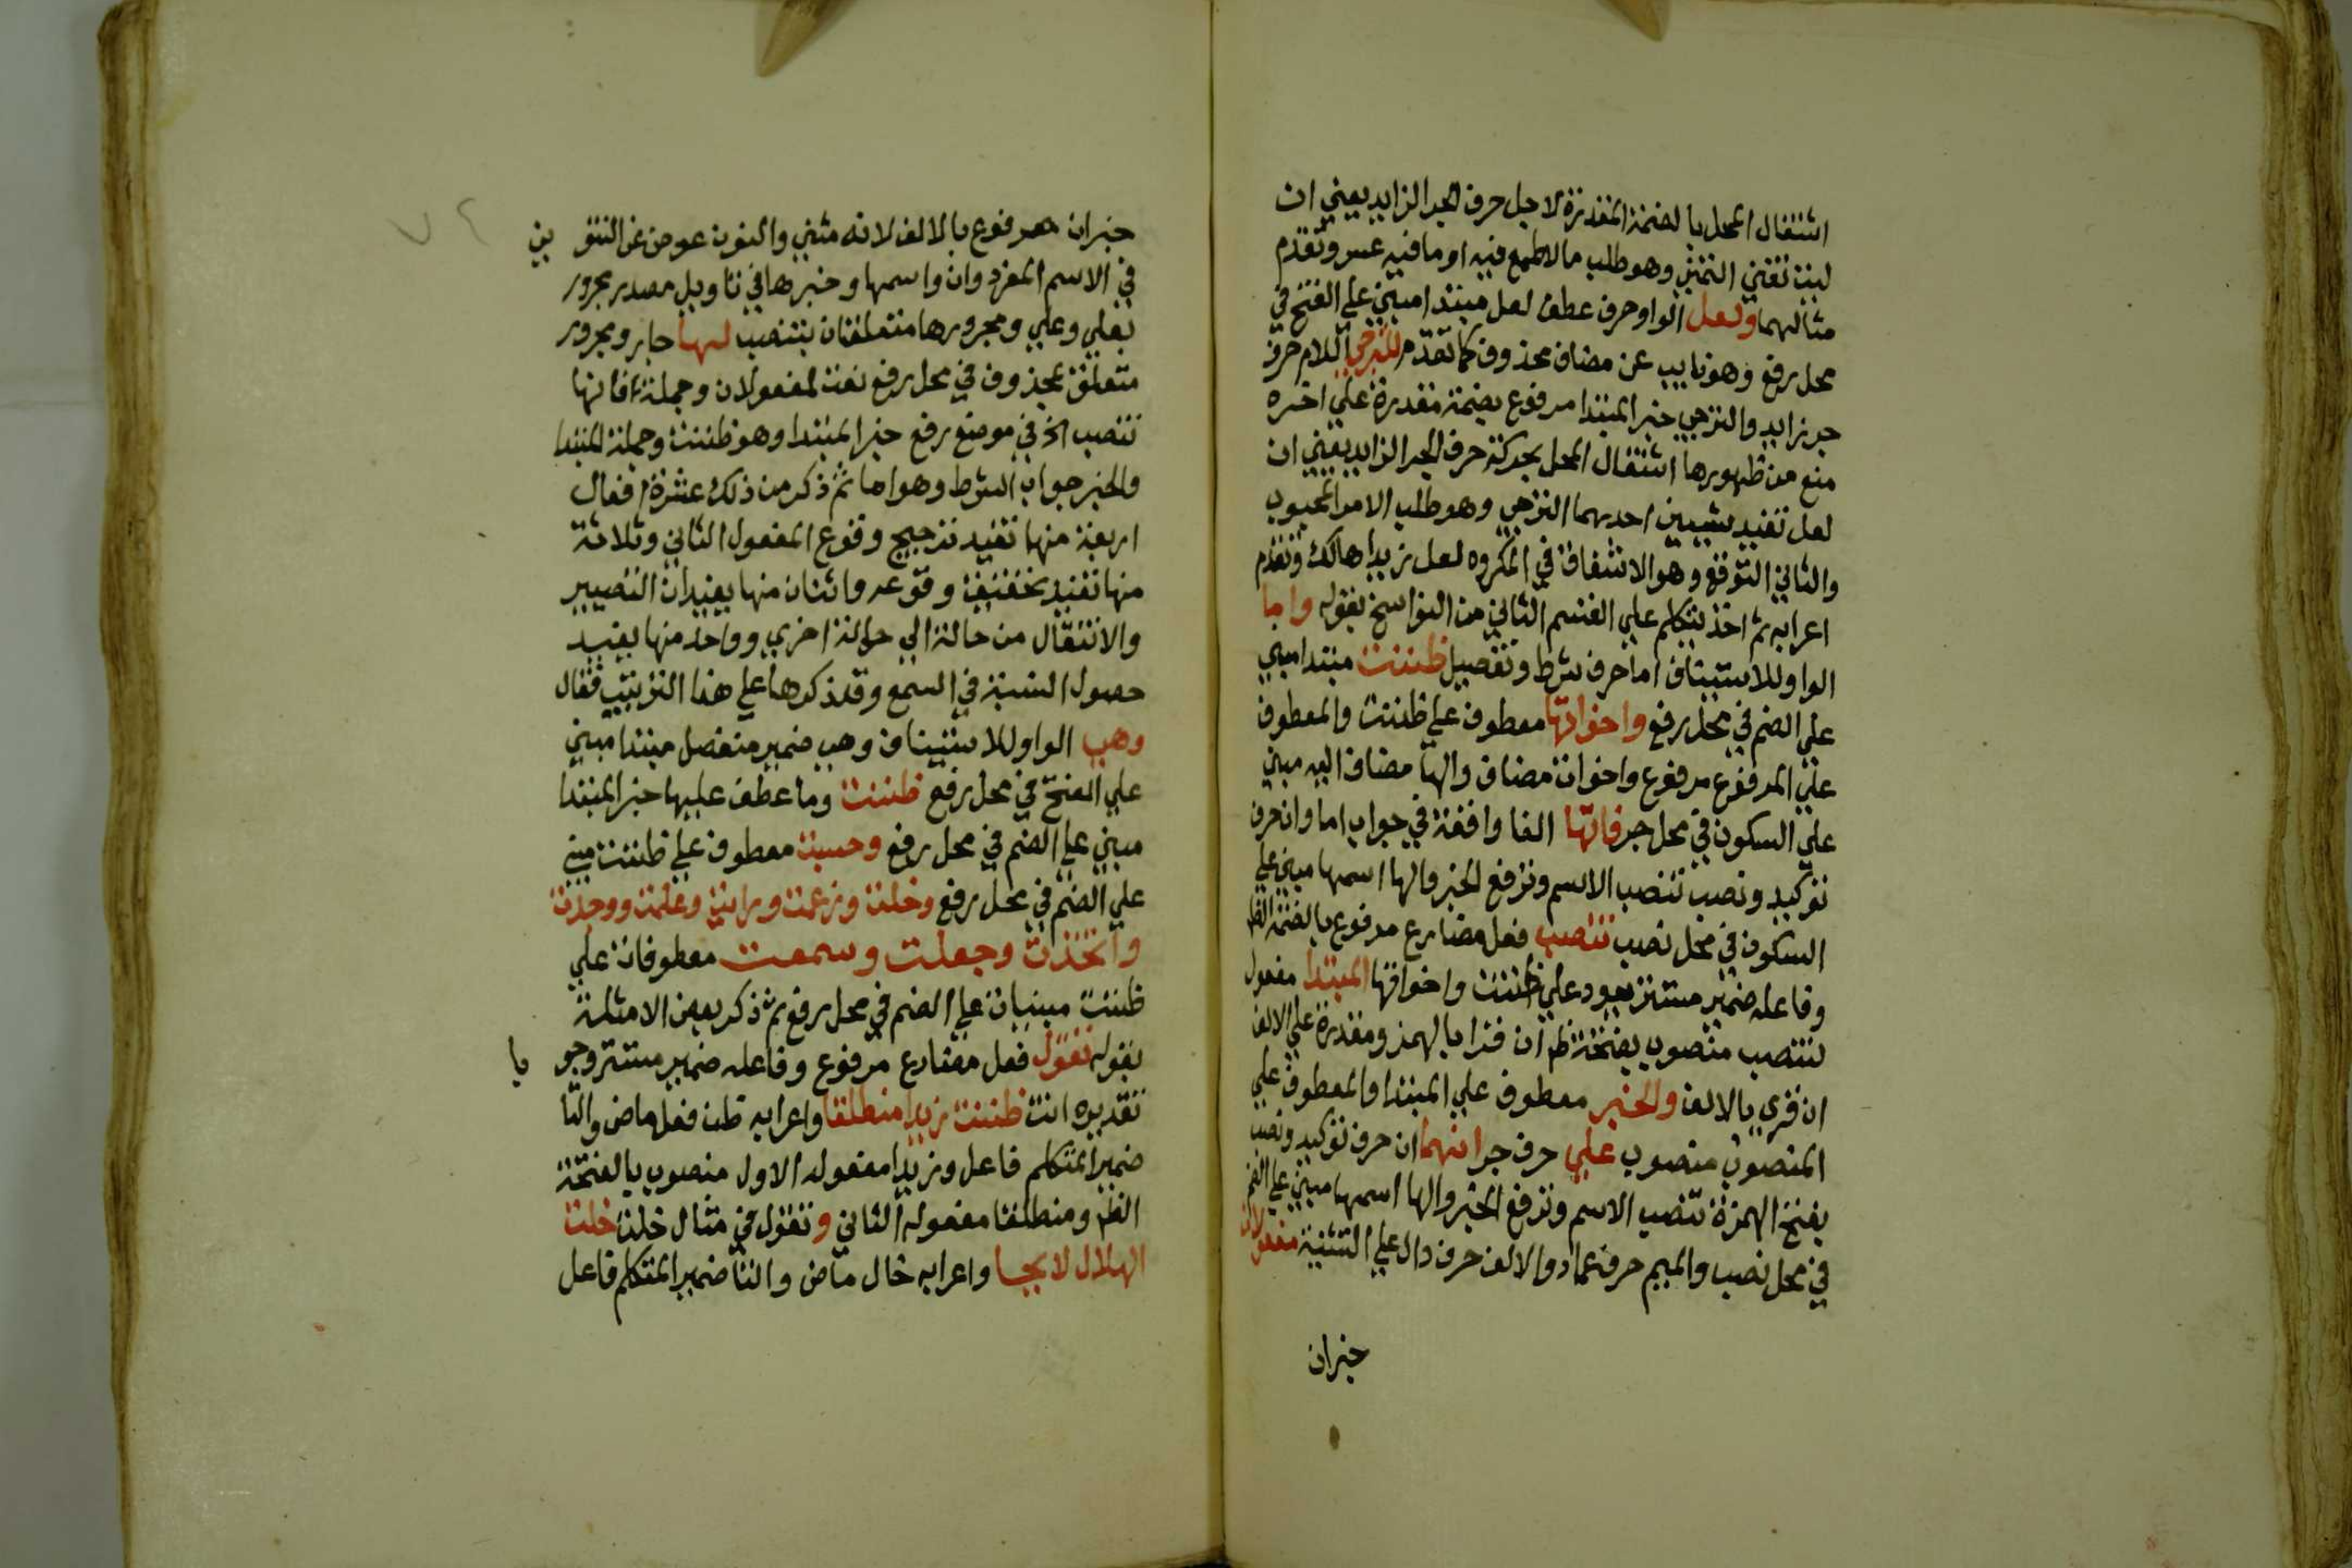 اشتغال المحل بالضمة المقدرة لاجل حرف الجر الزايد يعني ان
ليت تفيد التمني وهو طلب ما لا طمع فيه او ما فيه عسر وتقدم
مثالهما ولعل الواو حرف عطف لعل مبتدا مبني علي الفتح في
محل رفع وهو نايب عن مضاف محذوف كما تقدم للترجي اللام حرف
جر زايد والترجي خبر المبتدا مرفوع بضمة مقدرة علي اخره
منع من ظهورها اشتغال المحل بحركة حرف الجر الزايد يعني ان
لعل تفيد شيين احدهما الترجي وهو طلب الامر المحبوب
والثاني التوقع وهو الاشفاق في المكروه لعل زيدا هالك وتقدم
اعرابه ثم اخذ يتكلم علي القسم الثاني من النواسخ بقوله واما
الواو للاستيناف اما حرف شرط وتفصيل ظننت مبتدا مبني
علي الضم في محل رفع واخواتها معطوف علي ظننت والمعطوف
علي المرفوع مرفوع واخوات مضاف والها مضاف اليه مبني
علي السكون في محل جر فانها الفا واقعة في جواب اما وان حرف
توكيد ونصب تنصب الاسم وترفع الخبر والها اسمها مبني علي
السكون في محل نصب تنصب فعل مضارع مرفوع بالضمة الظ
وفاعله ضمير مستتر يعود علي ظننت واخواتها المبتدا مفعول
لتنصب منصوب بفتحة ظ ان قرا بالهمز ومقدرة علي الالف
ان قري بالالف والخبر معطوف علي المبتدا والمعطوف علي
المنصوب منصوب علي حرف جر انهما ان حرف توكيد ونصب
بفتح الهمزة تنصب الاسم وترفع الخبر والها اسمها مبني علي الضم
في محل نصب والميم حرف عماد والالف حرف دال علي التثنية مفعولان
خبران
٧٢
خبران مرفوع بالالف لانه مثني والنون عوض عن التنوين
في الاسم المفرد وان واسمها وخبرها في تاويل مصدر مجرور
بعلي وعلي ومجرورها متعلقان بتنصب لهما جار ومجرور
متعلق بمحذوف في محل رفع نعت لمفعولان وجملة فانها
تنصب الخ في موضع رفع خبر المبتدا وهو ظننت وجملة المبتدا
والخبر جواب الشرط وهو اما ثم ذكر من ذلك عشرة افعال
اربعة منها تفيد ترجيح وقوع المفعول الثاني وثلاثة
منها تفيد تحقيق وقوعه واثنان منها يفيدان التصيير
والانتقال من حالة الي حالة اخري وواحد منها يفيد
حصول النسبة في السمع وقد ذكرها علي هذا الترتيب فقال
وهي الواو للاستيناف وهي ضمير منفصل مبتدا مبني
علي الفتح في محل رفع ظننت وما عطف عليها خبر المبتدا
مبني علي الضم في محل رفع وحسبت معطوف علي ظننت مبني
علي الضم في محل رفع وخلت وزعمت ورايت وعلمت ووجدت
واتخذت وجعلت وسمعت معطوفات علي
ظننت مبنيات علي الضم في محل رفع ثم ذكر بعض الامثلة
بقوله تقول فعل مضارع مرفوع وفاعله ضمير مستتر وجوبا
تقديره انت ظننت زيدا منطلقا واعرابه ظن فعل ماض والتا
ضمير المتكلم فاعل وزيدا مفعوله الاول منصوب بالفتحة
الظ ومنطلقا مفعوله الثاني وتقول في مثال خلت خلت
الهلال لايحا واعرابه خال ماض والتا ضمير المتكلم فاعل